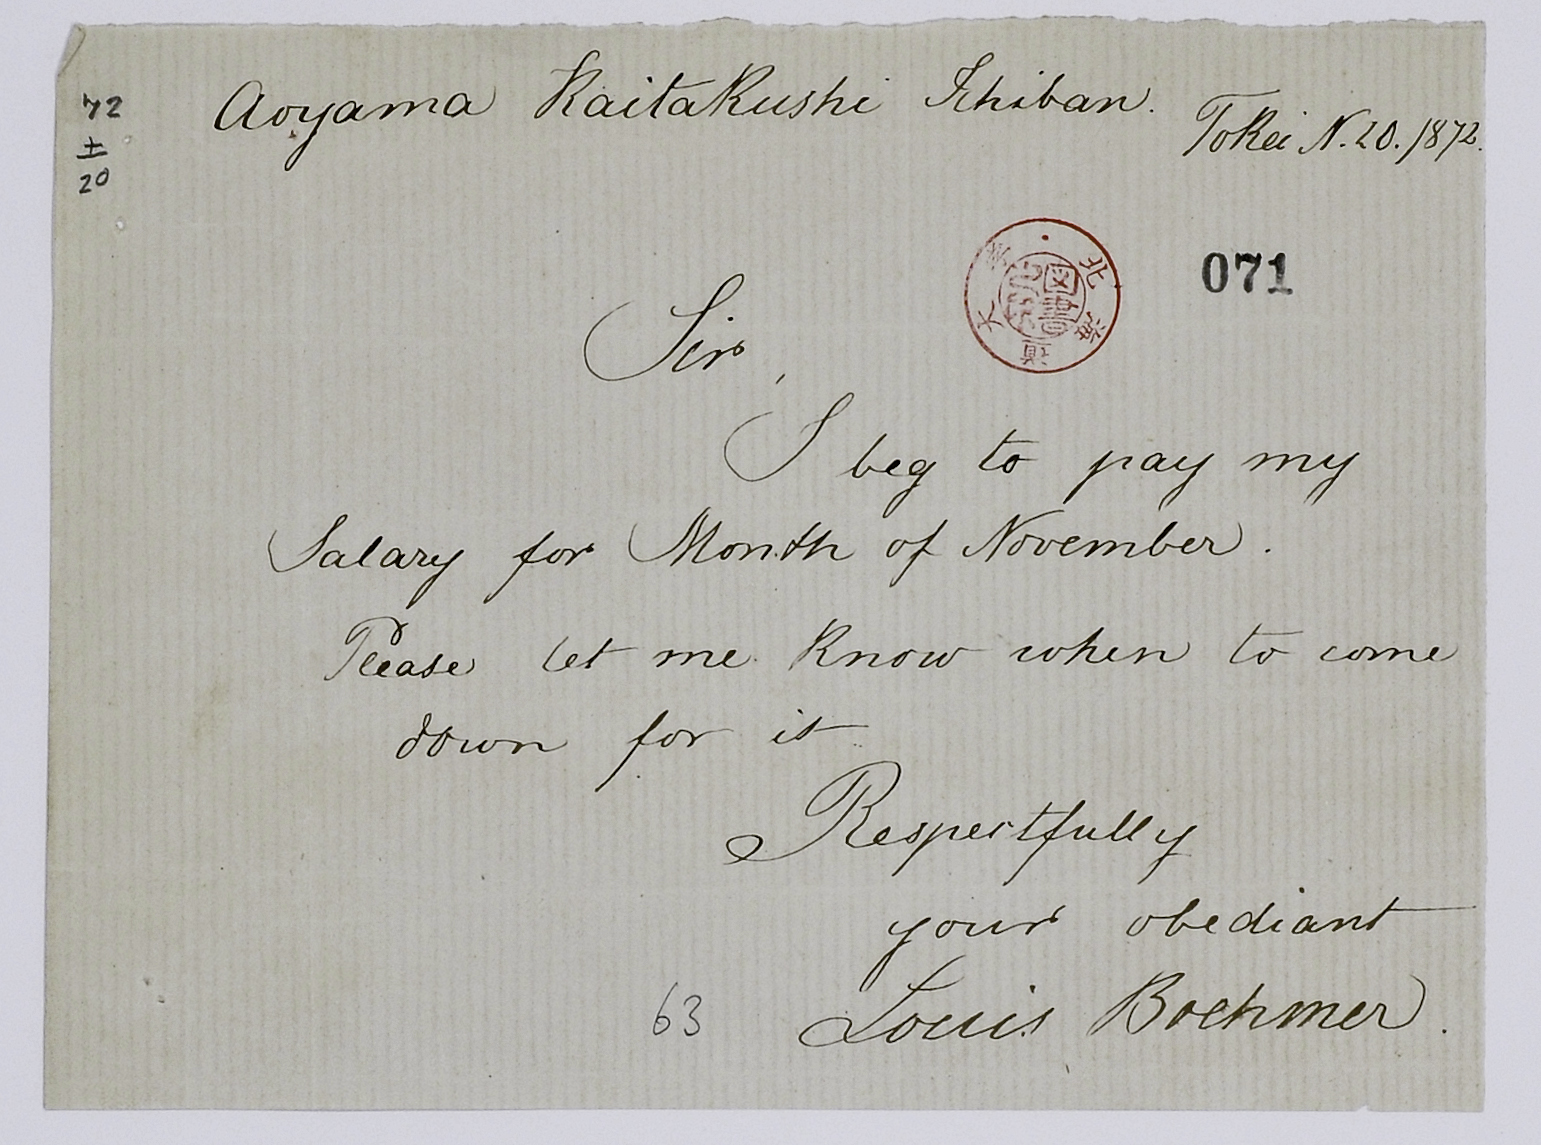 72
±
20
Aoyama Kaitakushi Ichiban.
Tokei N. 20. 1872.
北海道大学
図書
071
Sir,
I beg to pay my
Salary for Month of November.
Please let me know when to come
down for it
Respectfully
your obediant
Louis Boehmer.
63